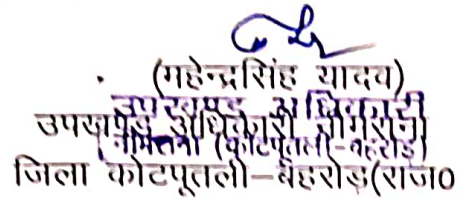 (महेन्द्रसिंह यादव)
उपखण्ड अधिकारी
उपखण्ड अधिकारी नीमराना
नीमराना (कोटपूतली-बहरोड़)
जिला कोटपूतली–बहरोड़(राज०